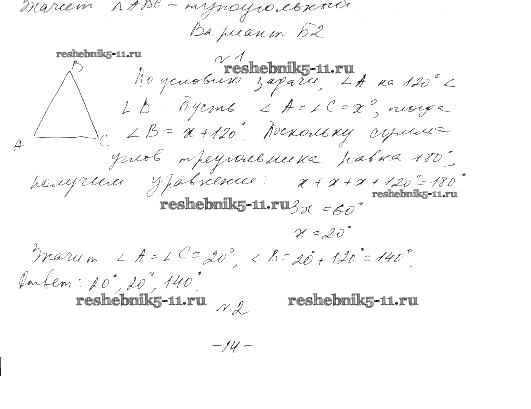 Значит △ABC – тупоугольный
Вариант Б2
reshebnik5-11.ru
№1
reshebnik5-11.ru
B
По условию задачи, ∠A на 120° <
∠B. Пусть ∠A = ∠C = x°, тогда
∠B = x + 120°. Поскольку сумма
A
C
углов треугольника равна 180°,
получим уравнение: x + x + x + 120° = 180°
reshebnik5-11.ru
reshebnik5-11.ru
3x = 60°
x = 20°
Значит ∠A = ∠C = 20°, ∠B = 20° + 120° = 140°.
Ответ: 20°, 20°, 140°.
reshebnik5-11.ru
reshebnik5-11.ru
№2
–14–